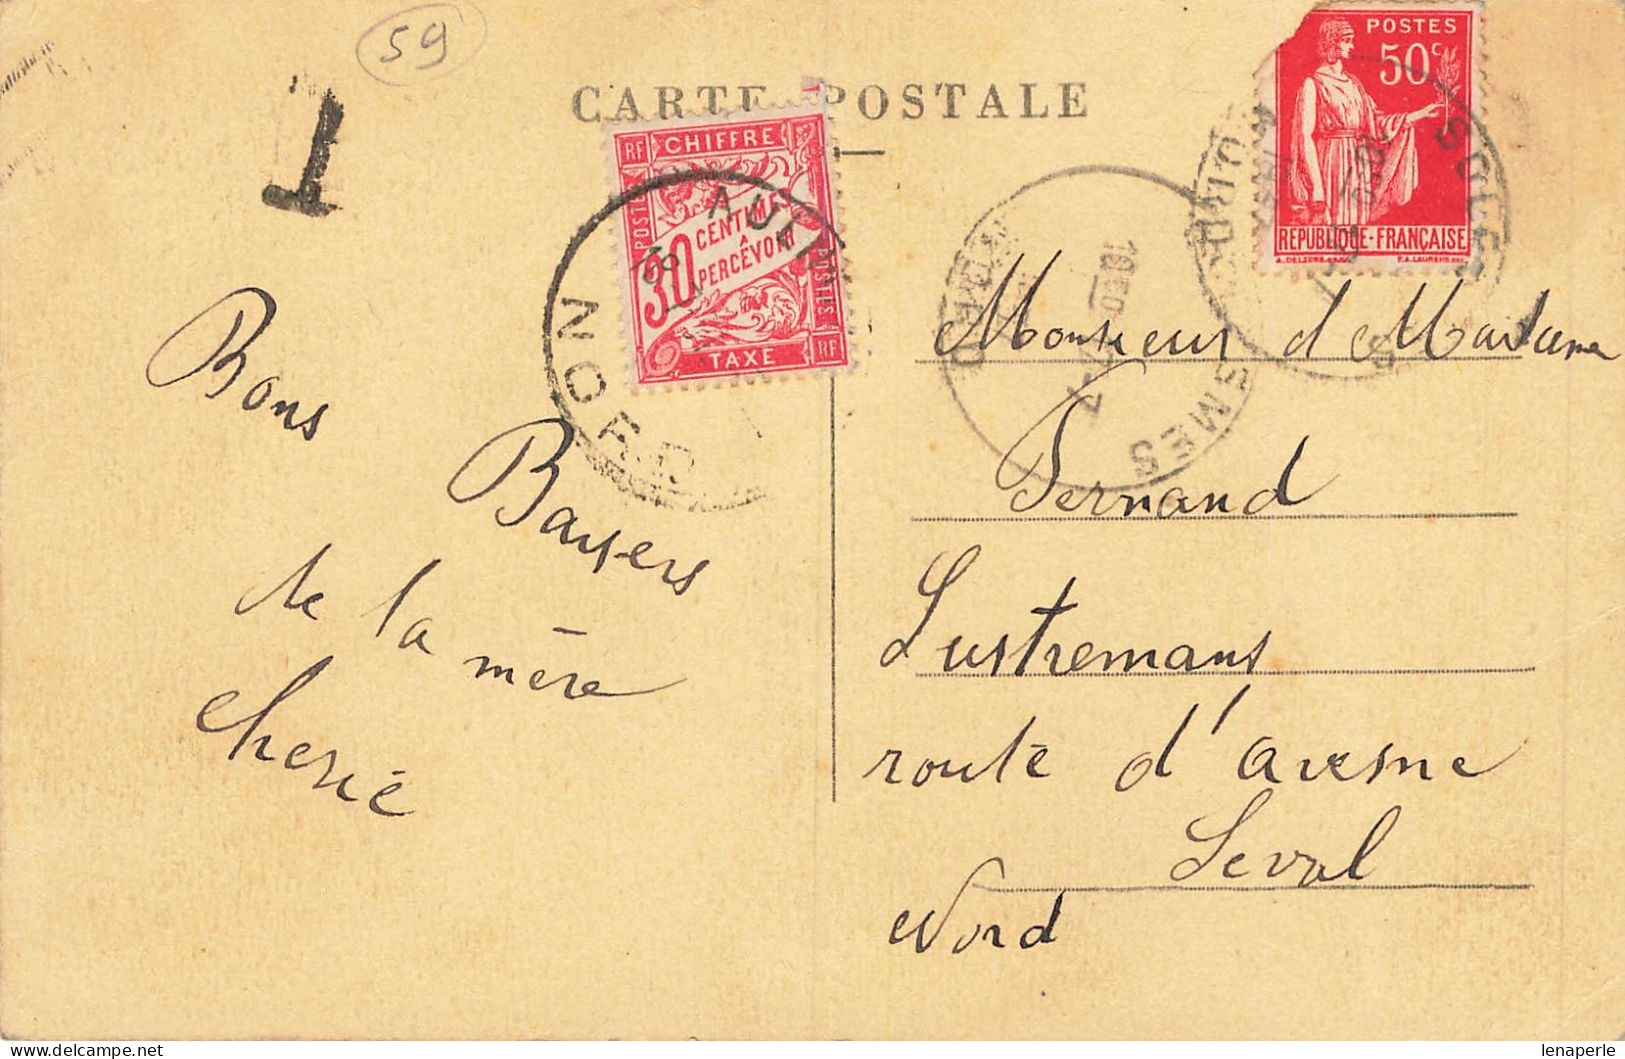 59
T
CARTE POSTALE
POSTES
50c
REPUBLIQUE-FRANÇAISE
RF CHIFFRE
POSTES
30 CENTIMES
A
PERCEVOIR
POSTES
TAXE RF
AULN
NORD
SMES
Bons
Baisers
de la mère
cherie
Monsieur et Madame
Fernand
Lustremans
route d'avesne
Leval
Nord
lenaperle